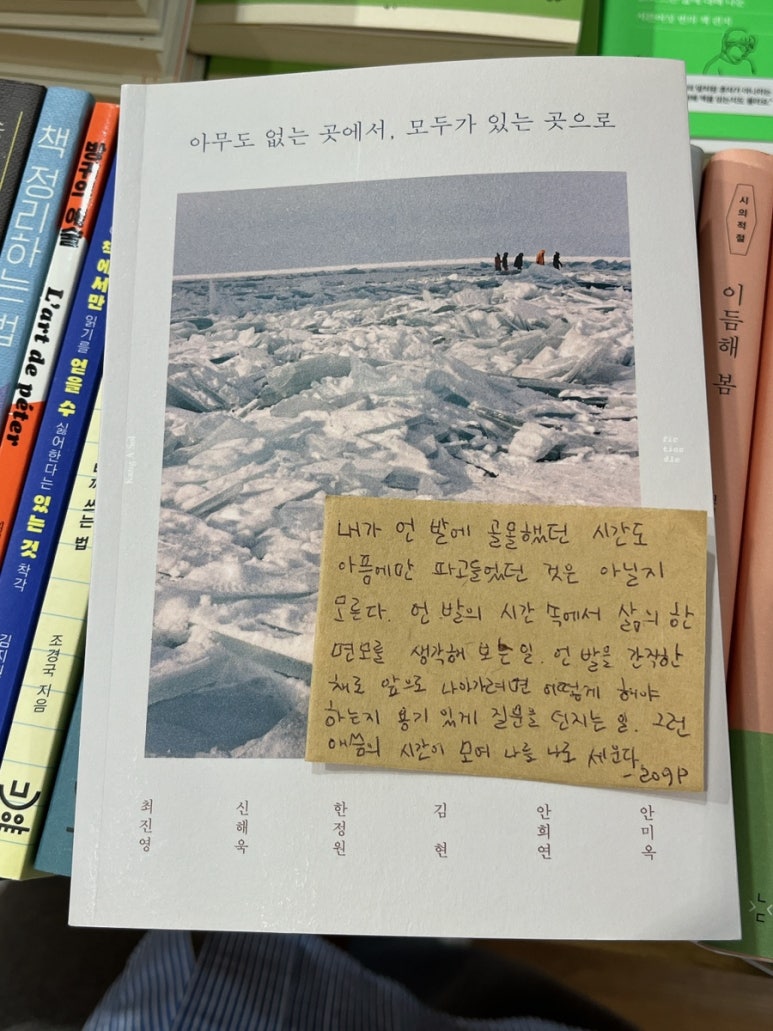 아무도 없는 곳에서, 모두가 있는 곳으로
fic
tion
dic
내가 언 발에 골몰했던 시간도
아픔에만 파고들었던 것은 아닐지
모른다. 언 발의 시간 속에서 삶의 한
면모를 생각해 보는 일. 언 발을 간직한
채로 앞으로 나아가려면 어떻게 해야
하는지 용기 있게 질문을 던지는 일. 그런
애씀의 시간이 모여 나를 나로 세운다.
-209P
최진영
신해욱
한정원
김현
안희연
안미옥
책 정리하는 법
방구의 예술
L'art de péter
책에서만 읽기를 얻을 수 싶어한다는 있는 것 착각
쓰는 법
조경국 지음
시의적절
이듬해 봄